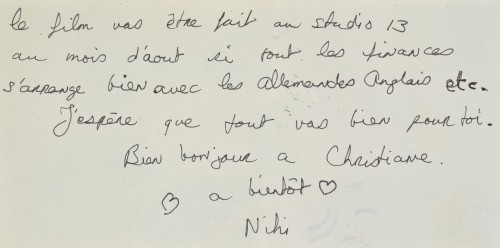 le film vas être fait au studio 13
au mois d'aout si tout les finances
s'arrange bien avec les allemandes Anglais etc.
J'espère que tout vas bien pour toi.
Bien bonjour a Christiane.
♡ a bientôt ♡
Niki